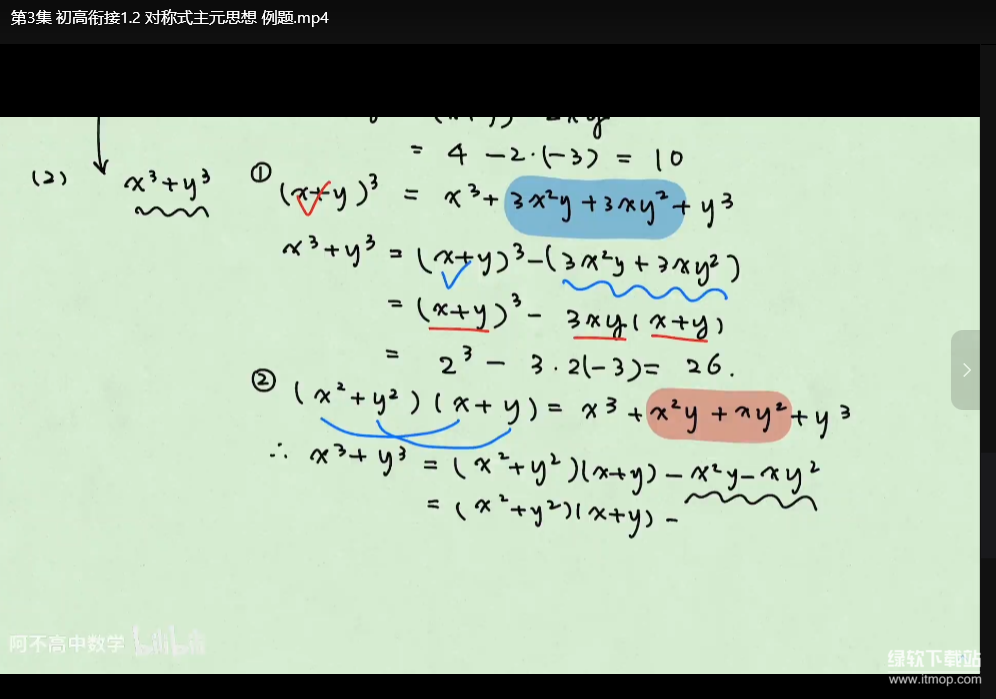 第3集 初高衔接1.2 对称式主元思想 例题.mp4
= 4 -2·(-3) = 10
(2) x³+y³ ① (x+y)³ = x³+3x²y+3xy²+y³
x³+y³ = (x+y)³-(3x²y+3xy²)
= (x+y)³- 3xy(x+y)
= 2³ - 3·2(-3)= 26.
② (x²+y²)(x+y)= x³+x²y+xy²+y³
∴ x³+y³ =(x²+y²)(x+y)-x²y-xy²
=(x²+y²)(x+y)-
阿不高中数学 bilibili
绿软下载站
www.itmop.com